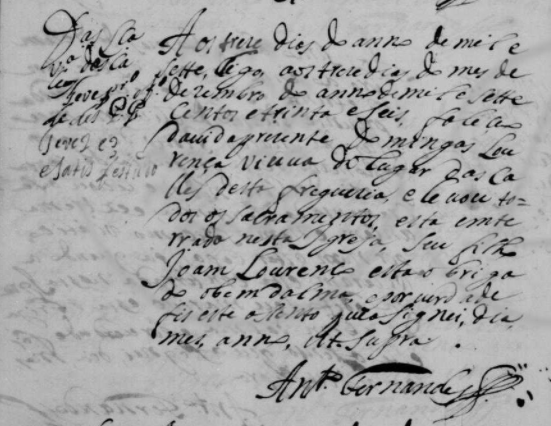 Aos treze dias do anno de mil e
sette, digo, aos treze dias do mes de
Dezembro do anno de mil e sette
centos e trinta e seis, faleceo
da vida prezente Domingas Lou
rença viuva do lugar das Ca
lles desta freguezia, e levou to-
dos os sacramentos, esta emte
rrada nesta Igreja, seu filho
Joam Lourenço esta obriga
do o bem dalma, e por verdade
fis este asento que asignei, dia
mes, anno, ut supra.
Antº Fernandes